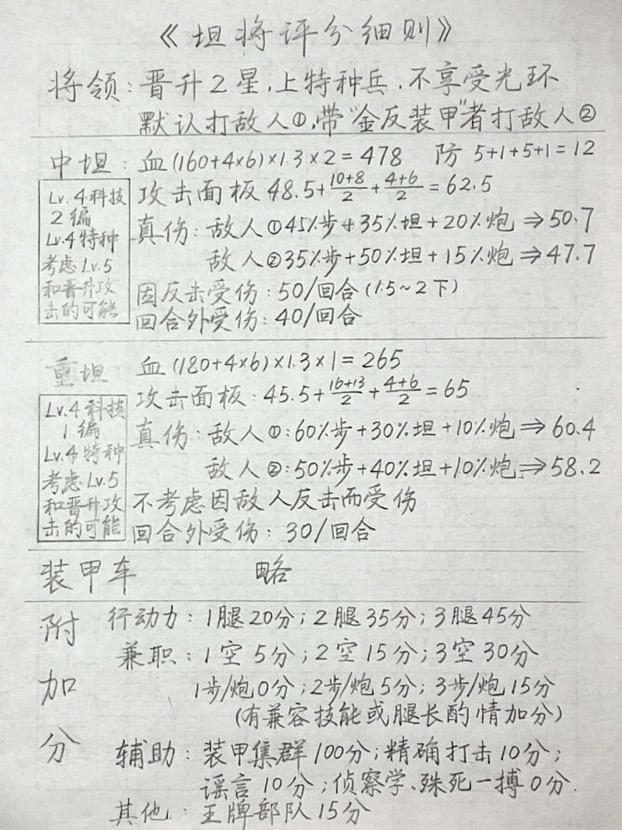 《坦将评分细则》
将领：晋升2星，上特种兵，不享受光环
默认打敌人①，带“金反装甲”者打敌人②
中坦：血(160+4×6)×1.3×2=478 防 5+1+5+1=12
Lv.4科技
2编
Lv.4特种
考虑Lv.5
和晋升攻
击的可能
攻击面板 48.5+\frac{10+8}{2}+\frac{4+6}{2}=62.5
真伤：敌人①45%步+35%坦+20%炮⇒50.7
敌人②35%步+50%坦+15%炮⇒47.7
因反击受伤：50/回合(1.5~2下)
回合外受伤：40/回合
重坦：血(180+4×6)×1.3×1=265
Lv.4科技
1编
Lv.4特种
考虑Lv.5
和晋升攻
击的可能
攻击面板：45.5+\frac{16+13}{2}+\frac{4+6}{2}=65
真伤：敌人①：60%步+30%坦+10%炮⇒60.4
敌人②：50%步+40%坦+10%炮⇒58.2
不考虑因敌人反击而受伤
回合外受伤：30/回合
装甲车 略
附加分
行动力：1腿20分；2腿35分；3腿45分
兼职：1空5分；2空15分；3空30分
1步/炮0分；2步/炮5分；3步/炮15分
(有兼容技能或腿长酌情加分)
辅助：装甲集群100分；精确打击10分；
谣言10分；侦察学、殊死一搏0分.
其他：王牌部队15分